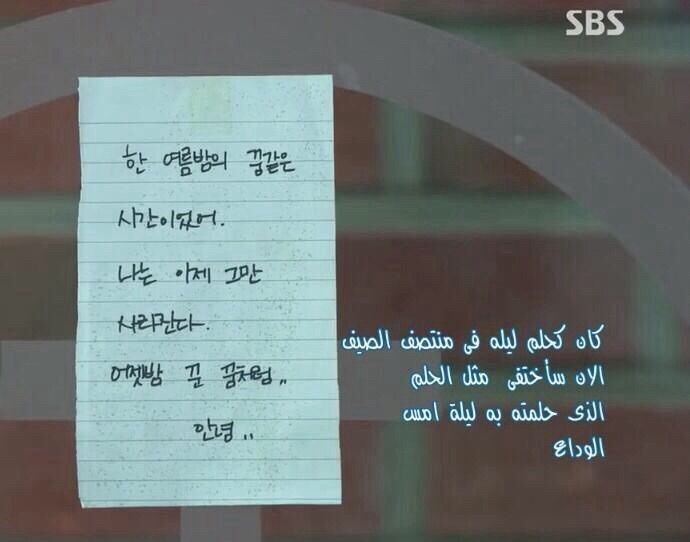 SBS
한 여름밤의 꿈같은
시간이었어.
나는 이제 그만
사라진다.
어젯밤 꾼 꿈처럼..
안녕..
كان كحلم ليله فى منتصف الصيف
الان سأختفى مثل الحلم
الذى حلمته به ليلة امس
الوداع